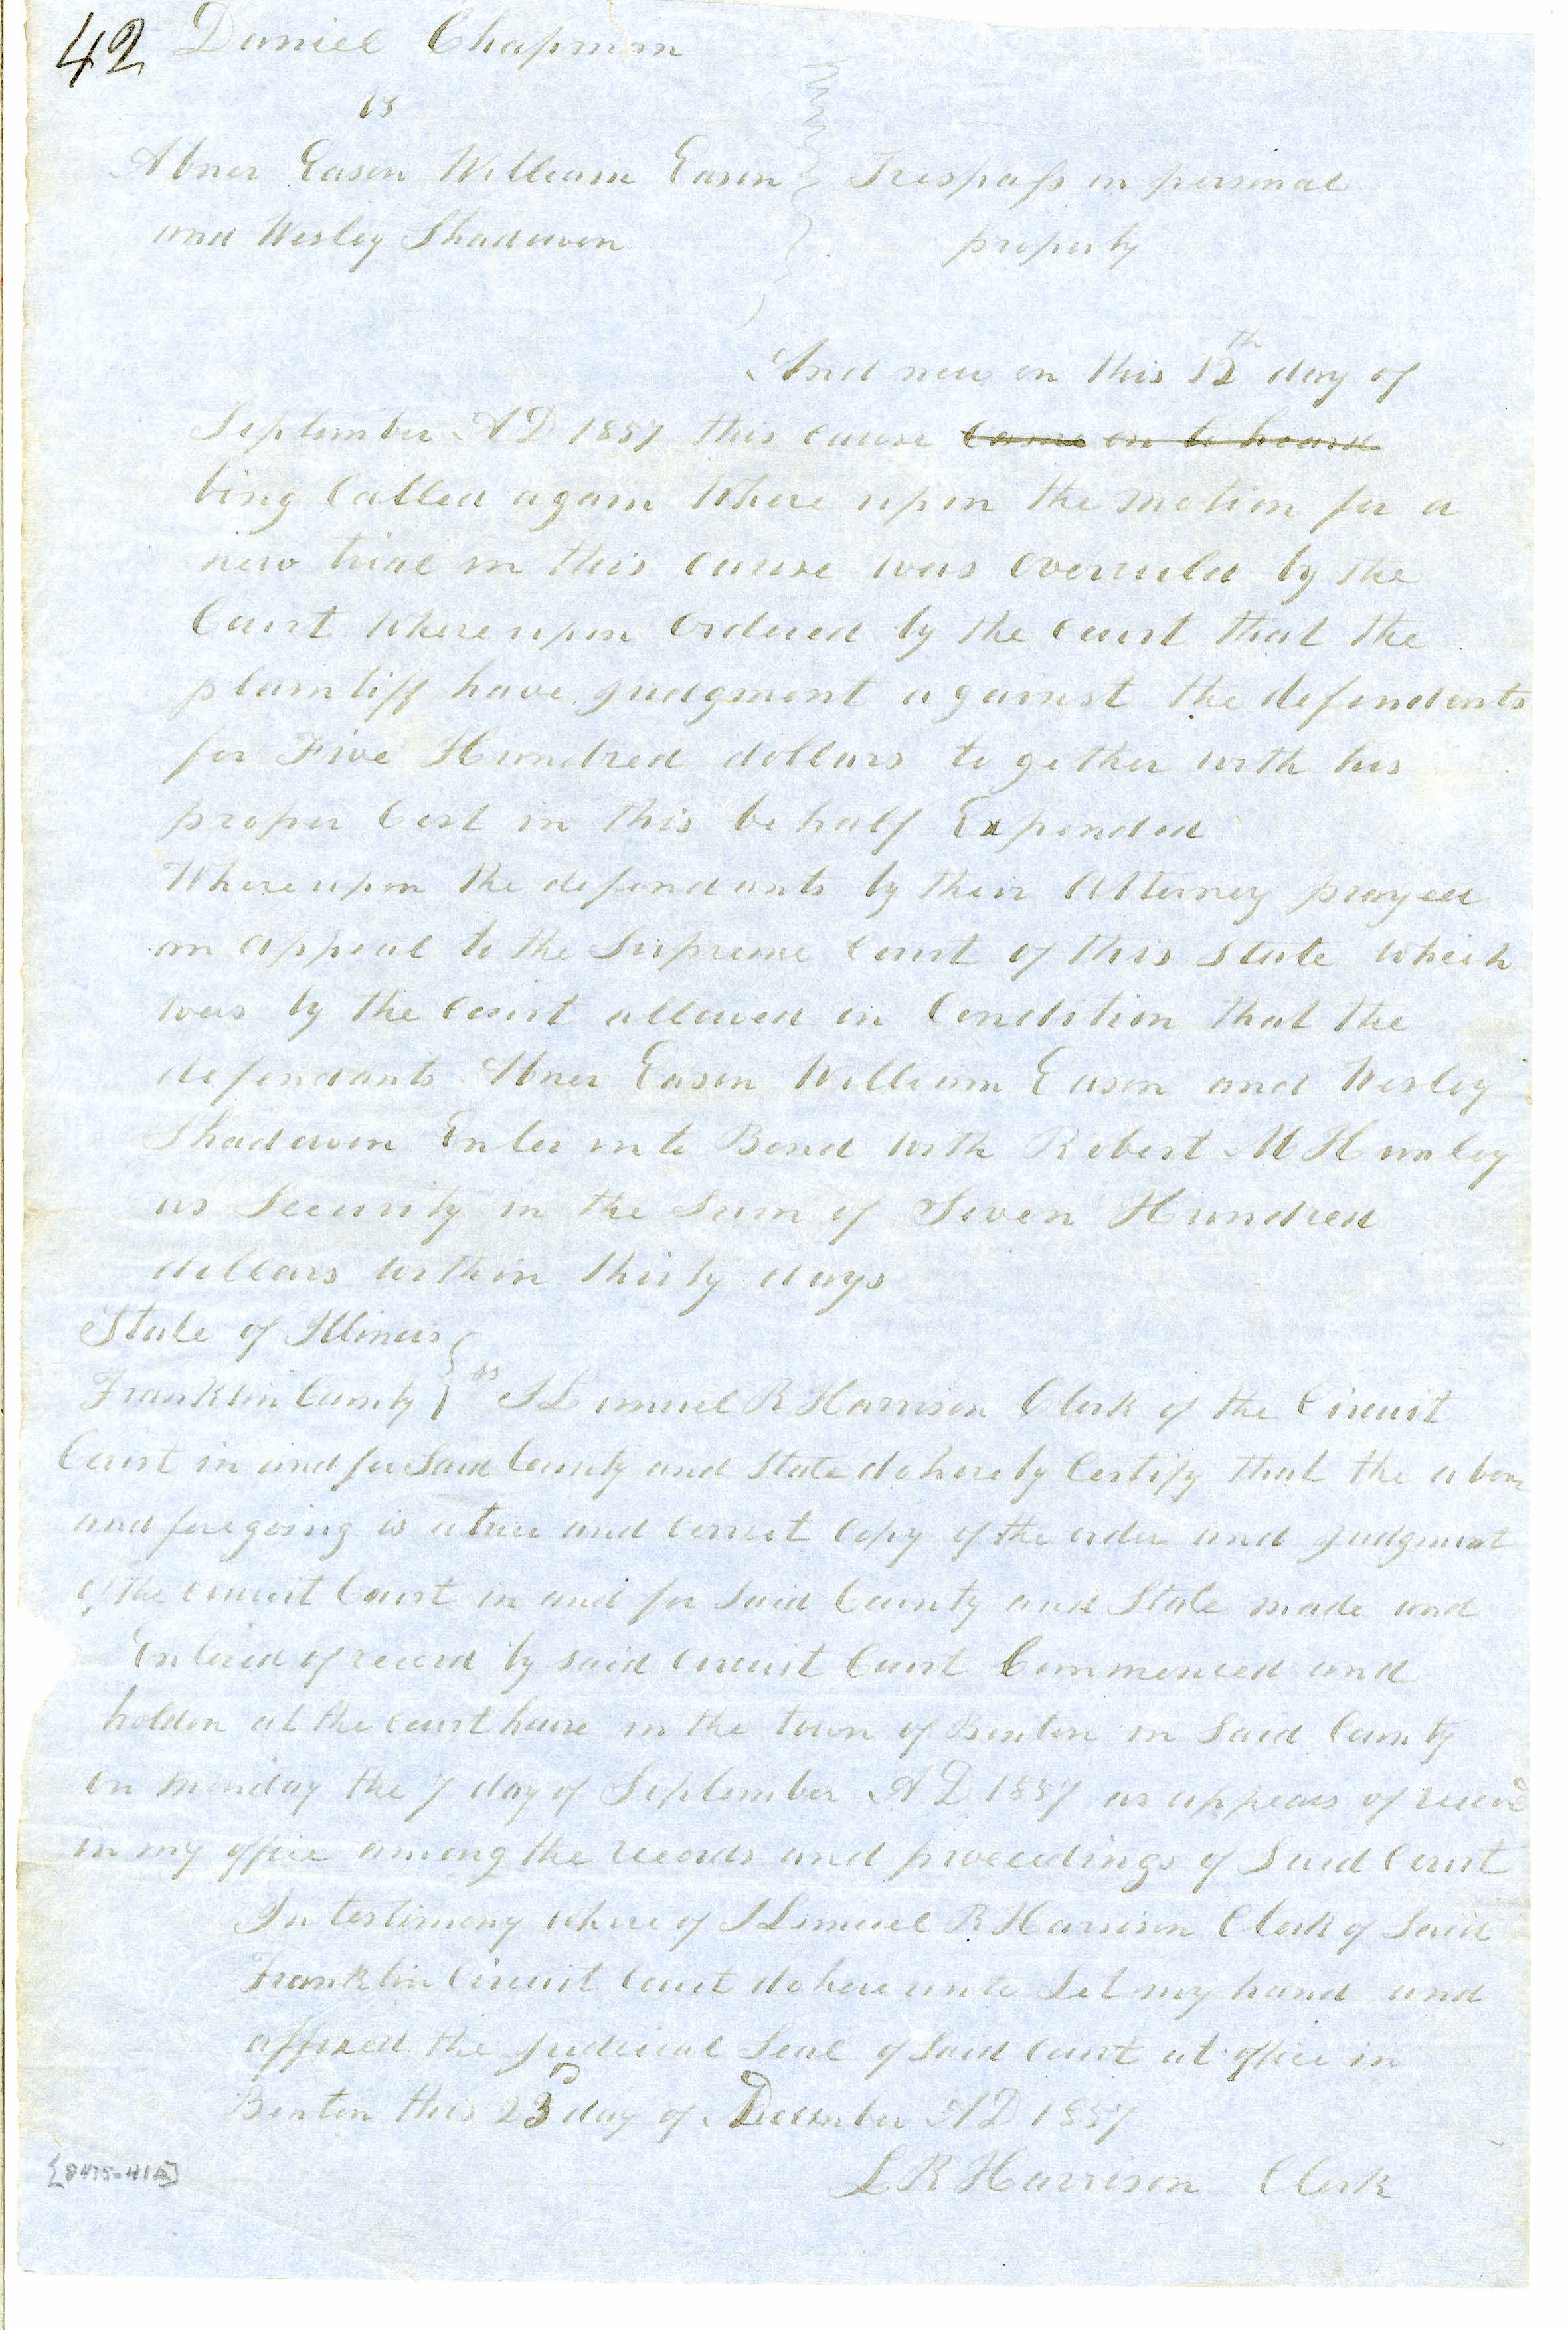 42 Daniel Chapman
vs
Abner Eason William Eason } Trespass in personal
and Wesley Shadowen property
And now on this 12th day of
September A D 1857 this cause came on to heard
bing Called again Where upon the motion for a
new trial in this cause was overruled by the
Court Where upon Ordered by the court that the
plaintiff have judgment against the defendants
for Five Hundred dollars to gether with his
proper Cost in this be half Expended
Where upon the defendants by their Attorney prayed
an appeal to the Supreme Court of this State which
was by the court allowed on Condition that the
defendants Abner Eason William Eason and Wesley
Shadowen Enter into Bond with Robert M Hunley
as Security in the Sum of Seven Hundred
dollars within thirty days
State of Illinois
Franklin County } ss I Lemuel R Harrison Clerk of the Circuit
Court in and for Said County and State do hereby Certify that the above
and foregoing is a true and Correct Copy of the order and judgment
of the circuit Court in and for Said County and State made and
Entered of record by said circuit Court Commenced and
holden at the court house in the town of Benton in Said County
on monday the 7 day of September A D 1857 as appears of record
in my office among the records and proceedings of Said Court
In testimony where of I Lemuel R Harrison Clerk of Said
Franklin Circuit Court do here unto Set my hand and
affixed the judicial Seal of Said Court at office in
Benton this 23D day of December A D 1857
L R Harrison Clerk
[8475-41A]